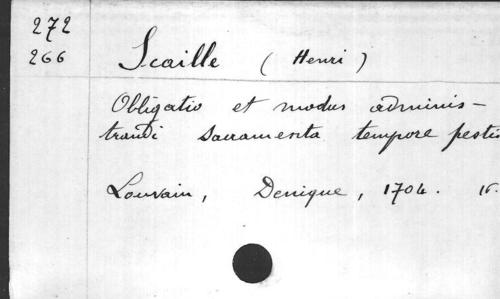 272
266 Scaille (Henri)
Obligatio et modus adminis-
trandi sacramenta tempore pestis
Louvain, Denique, 1704. 16.